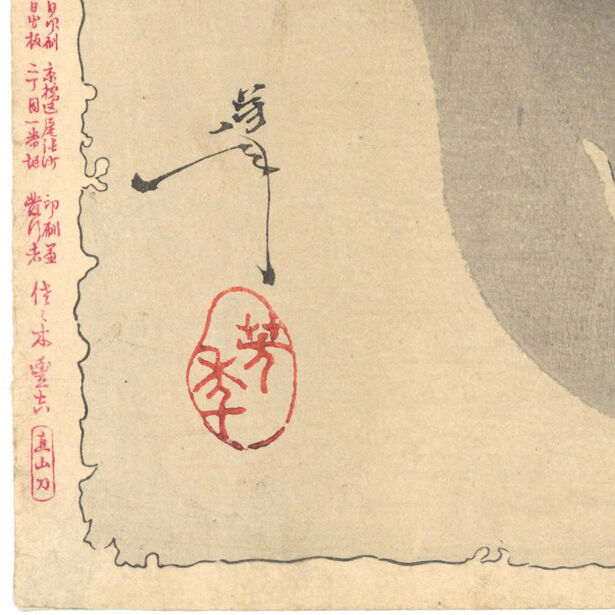 日印刷
日出板
京橋区尾張町
二丁目一番地
印刷兼
發行者
佐々木豊吉
直山刀
芳年
芳年